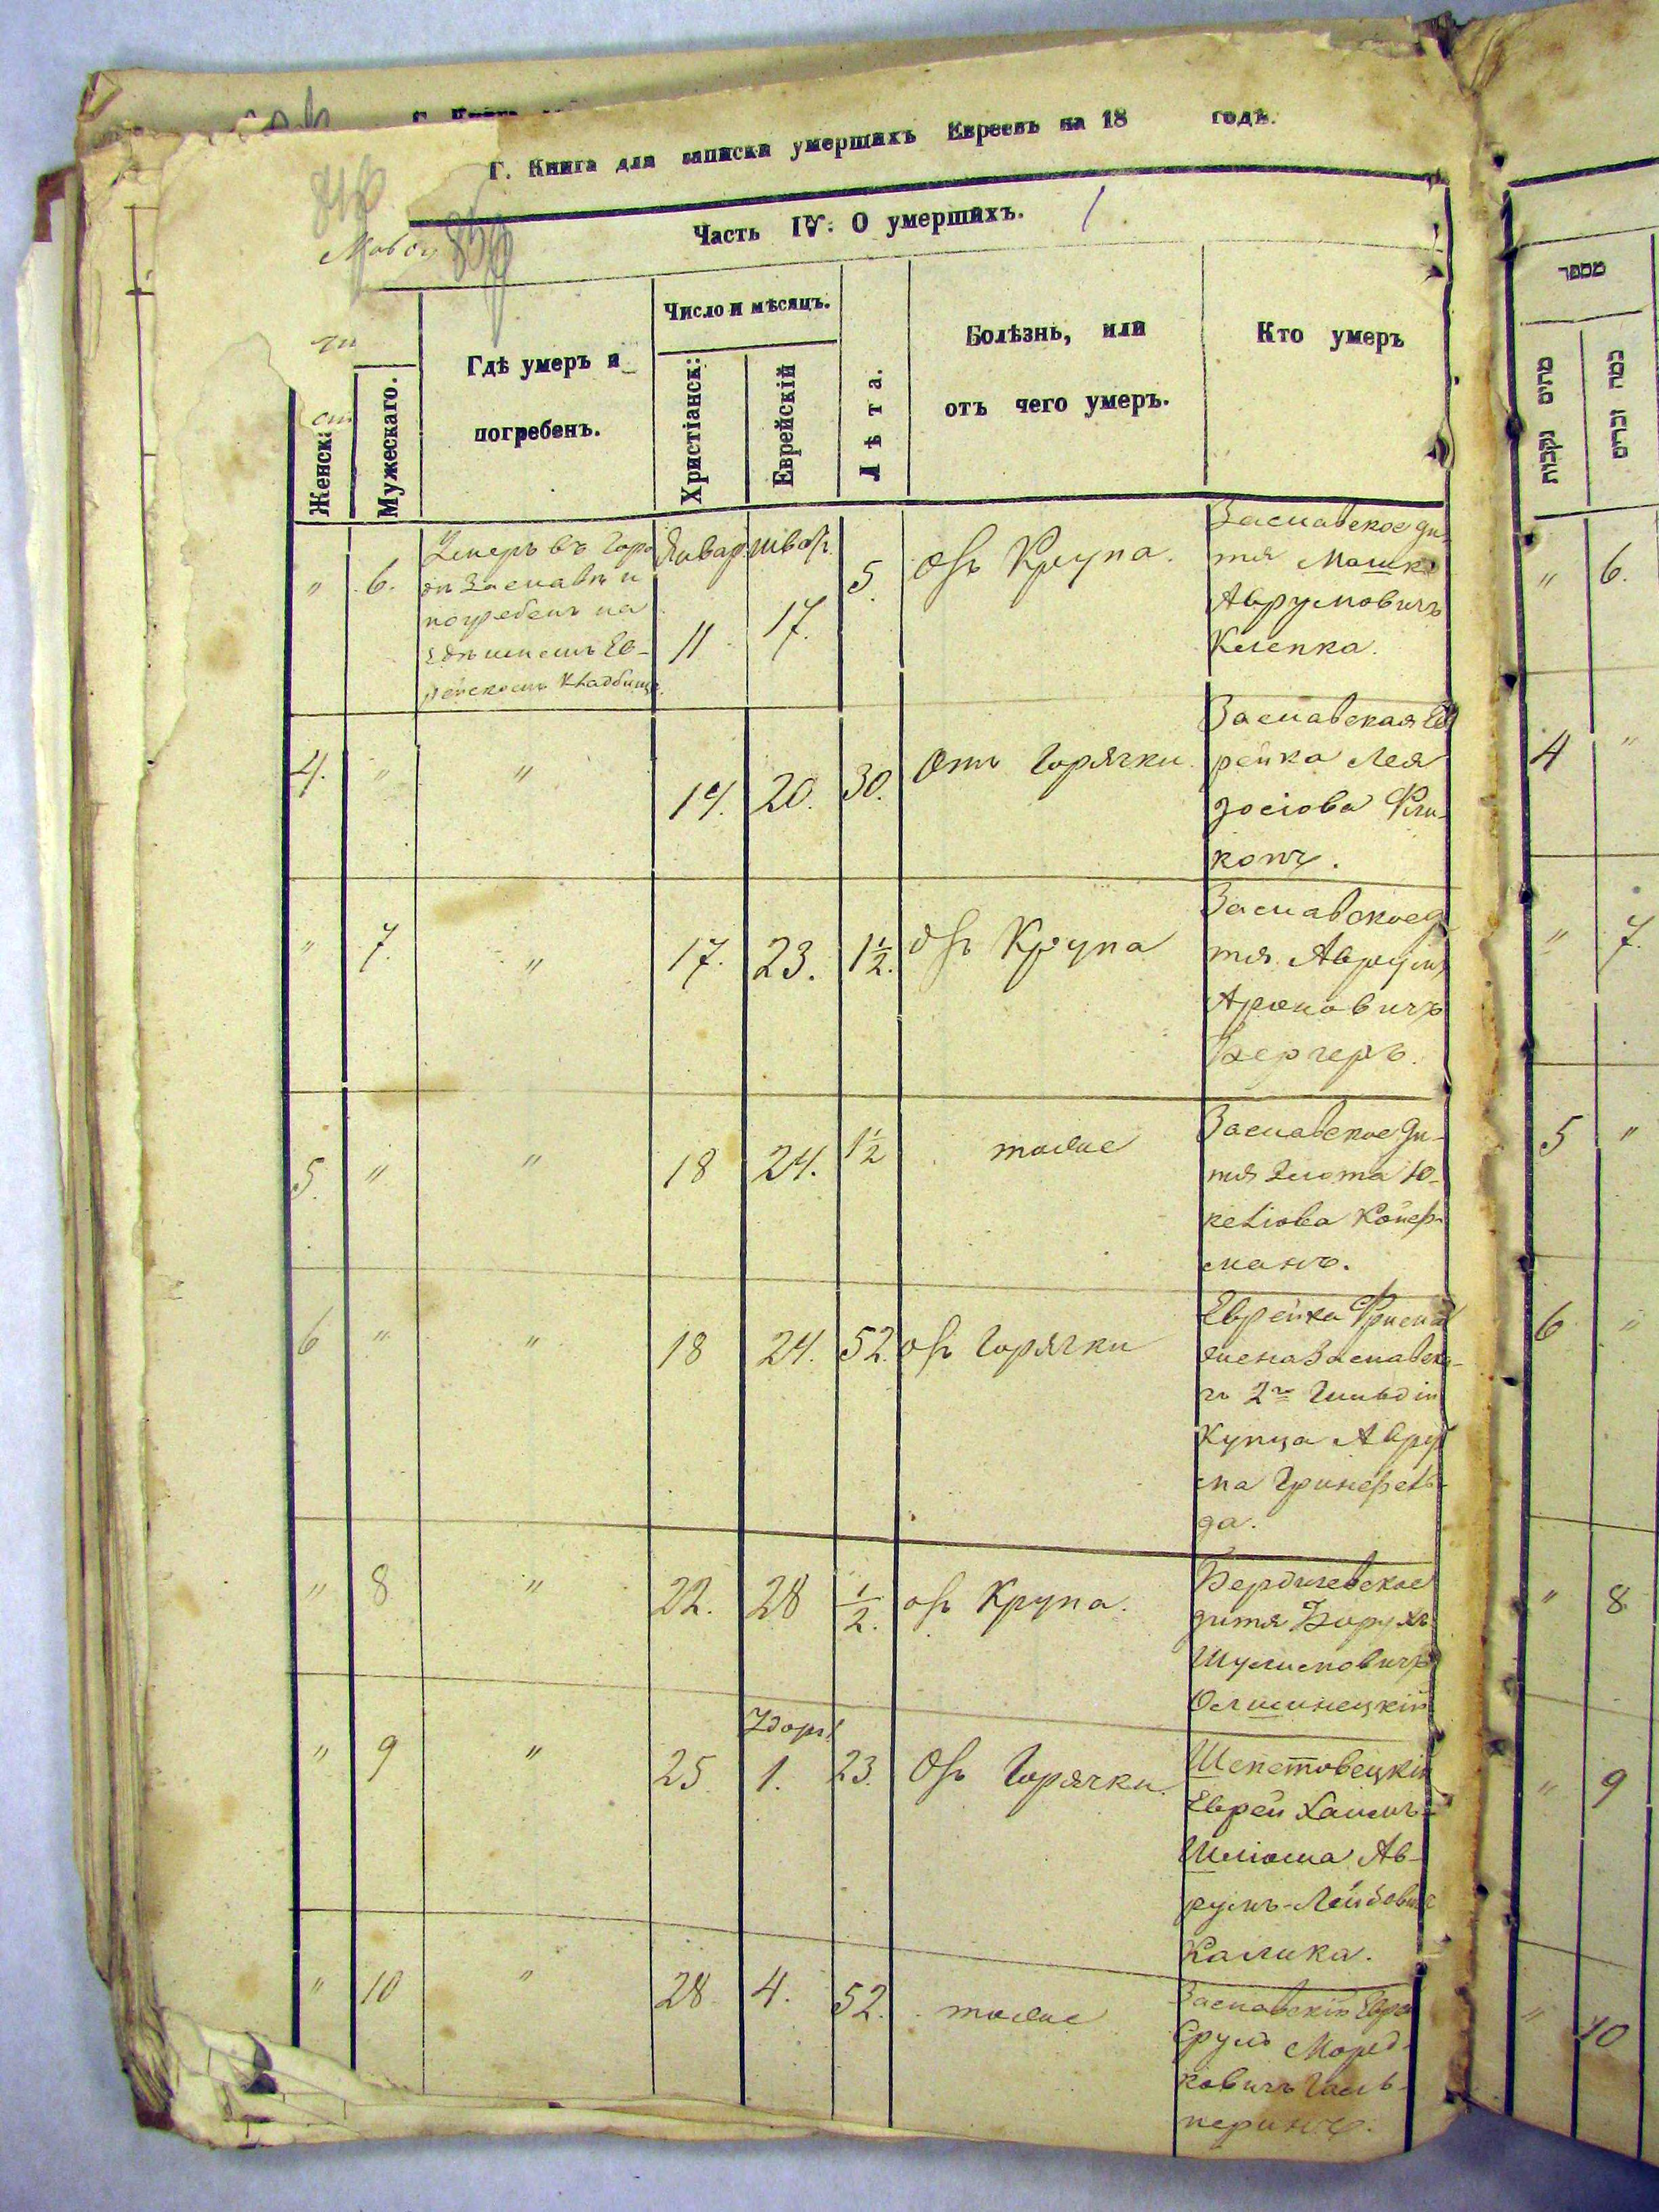 Г. Книга для записки умершихъ Евреевъ на 18 годъ.
Часть IV. О умершихъ.
Женск:
Мужескаго.
Гдѣ умеръ и
погребенъ.
Число и мѣсяцъ.
Христіанск:
Еврейскій
Лѣта.
Болѣзнь, или
отъ чего умеръ.
Кто умеръ
" 6.
Умеръ въ Горо
дѣ Заславѣ и
погребенъ на
здѣшнемъ Ев-
рейскомъ кладбище.
Январ.
11
17.
5.
отъ Крупа.
Заславское ди-
тя Мошко
Аврумовичъ
Клепка.
4. " "
14. 20. 30.
Отъ Горячки.
Заславская Ев
рейка Лея
" 7. "
17. 23. 1½.
отъ Крупа
Заславское д
тя Аврумъ
Ароновичъ
Бергеръ.
5. " "
18 24. 1½
тоже
Заславское ди-
тя Злота Ю-
келіова Койф-
манъ.
6 " "
18 24. 52.
отъ Горячки
Еврейка Фрима
жена Заславска-
го 2й Гильдіи
Купца Авру
ма Гринфель-
да.
" 8 "
22. 28 ½.
отъ Крупа.
Бердичевское
дитя Борухъ
Шулимовичъ
" 9 "
25 1. 23.
Отъ Горячки.
Шепетовецкій
Еврей Хаимъ-
Шліома Ав-
румъ-Лейбовичъ
Калика.
" 10 "
28. 4. 52.
тоже
Заславскій Евре
Срулъ Морд-
ковичъ Галь-
перинъ.
מספר
מתים נקבות
כמה זכרים
" 6.
4 "
" 7.
5 "
6 "
" 8
" 9
" 10